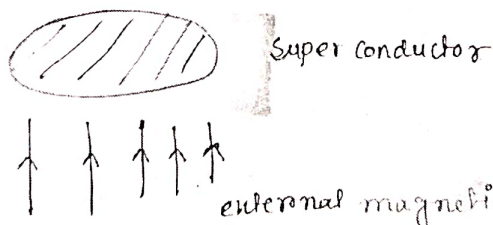 Super conductor
external magneti